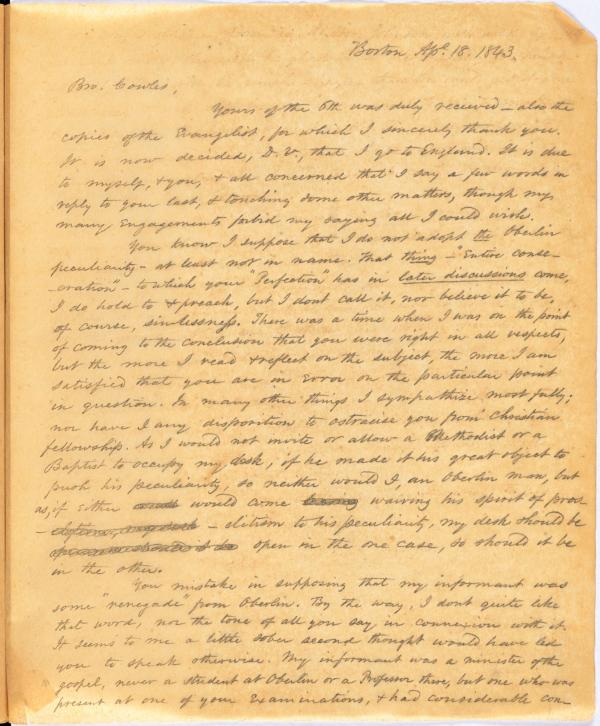 Boston, Apl. 18. 1843.
Bro. Cowles,
Yours of the 6th was duly received – also the
copies of the Evangelist, for which I sincerely thank you.
It is now decided, D.V., that I go to England. It is due
to myself, & you, & all concerned that I say a few words in
reply to your last, & touching some other matters, though my
many Engagements forbid my saying all I could wish.
You know I suppose that I do not adopt the Oberlin
peculiarity – at least not in name. That thing – "Entire conse-
-cration" – to which your "Perfection" has in later discussions come,
I do hold to & preach, but I dont call it, nor believe it to be,
of course, sinlessness. There was a time when I was on the point
of coming to the conclusion that you were right in all respects,
but the more I read & reflect on the subject, the more I am
satisfied that you are in Error on the particular point
in question. In many other things I sympathize most fully;
nor have I any disposition to ostracise you from Christian
fellowship. As I would not invite or allow a Methodist or a
Baptist to occupy my desk, if he made it his great object to
push his peculiarity, so neither would I, an Oberlin man, but
as, if Either would come waiving his spirit of pros-
-elitism to his peculiarity, my desk should be
open in the one case, so should it be
in the other.
You mistake in supposing that my informant was
some "renegade" from Oberlin. By the way, I dont quite like
that word, nor the tone of all you say in connexion with it.
It seems to me a little sober second thought would have led
you to speak otherwise. My informant was a minister of the
gospel, never a student at Oberlin or a Professor there, but one who was
present at one of your Examinations, & had considerable con-